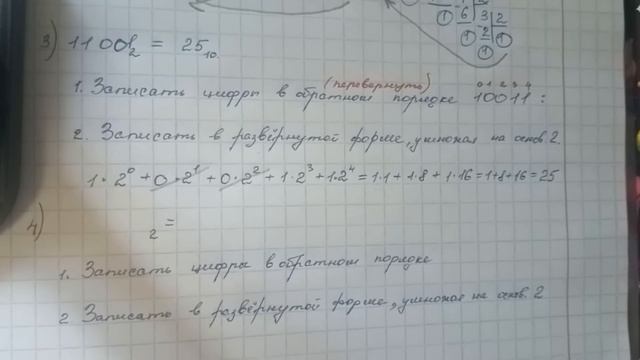 -6 3 2
1 -2 1
1
3) 11001₂ = 25₁₀.
(перевернуть) 0 1 2 3 4
1. Записать цифры в обратном порядке 10011:
2. Записать в развёрнутой форме, умножая на основ. 2.
1·2⁰ + 0·2¹ + 0·2² + 1·2³ + 1·2⁴ = 1·1 + 1·8 + 1·16 = 1+8+16 = 25
4) ₂ =
1. Записать цифры в обратном порядке
2 Записать в развёрнутой форме, умножая на основ. 2